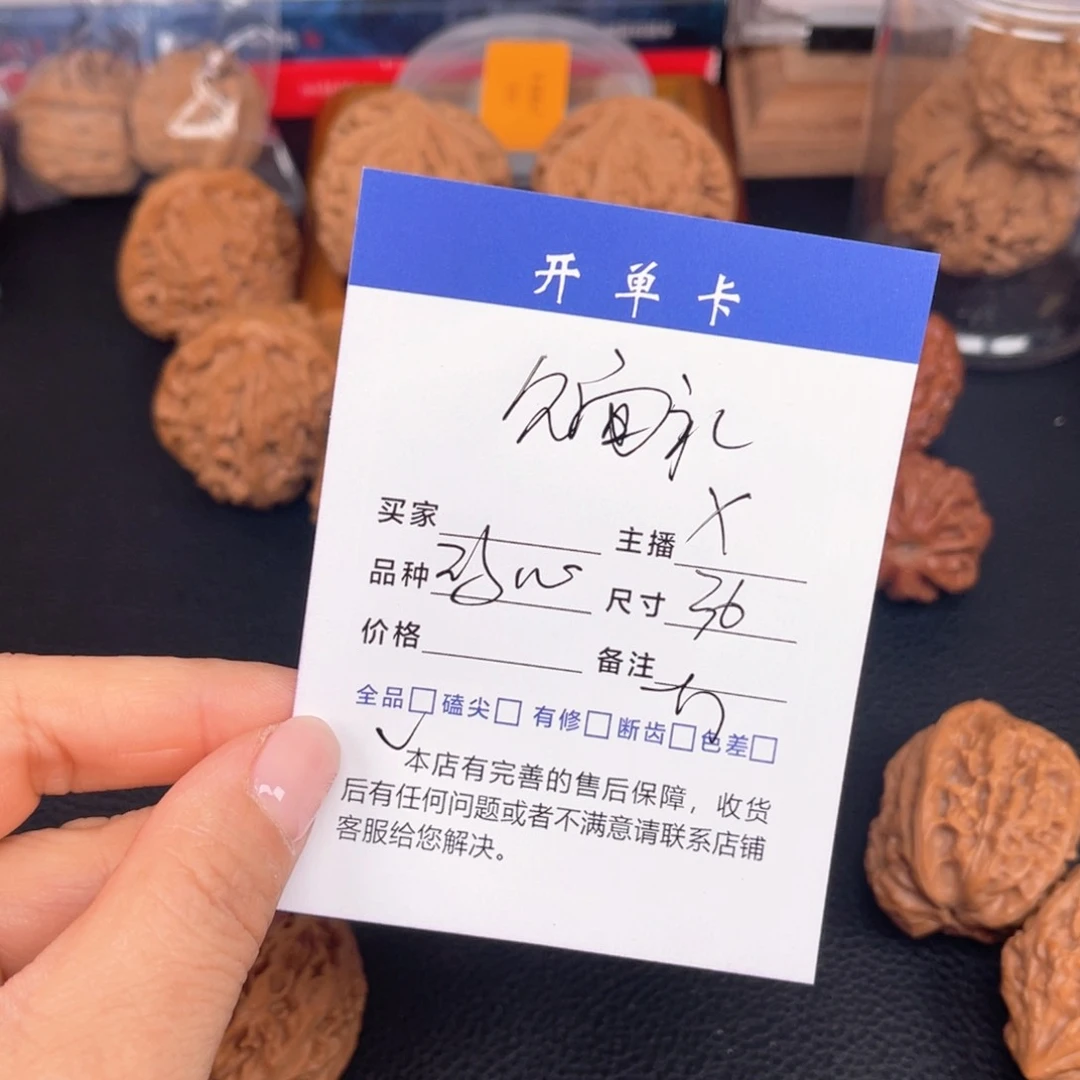 开单卡
买家 主播 X
品种 尺寸 36
价格 备注
全品 磕尖 有修 断齿 色差
本店有完善的售后保障，收货
后有任何问题或者不满意请联系店铺
客服给您解决。